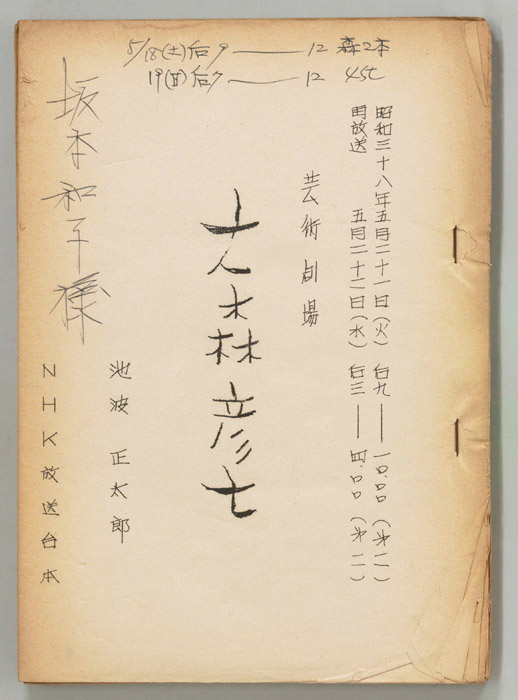 5/18(土)后9 ― 12 森2本
19(日)后7 ― 12 45C
昭和三十八年五月二十一日(火) 后九 ― 一〇.〇〇 (第一)
再放送 五月二十二日(水) 后三 ― 四.〇〇 (第一)
芸術劇場
大森彦七
池波正太郎
坂本和子様
NHK放送台本